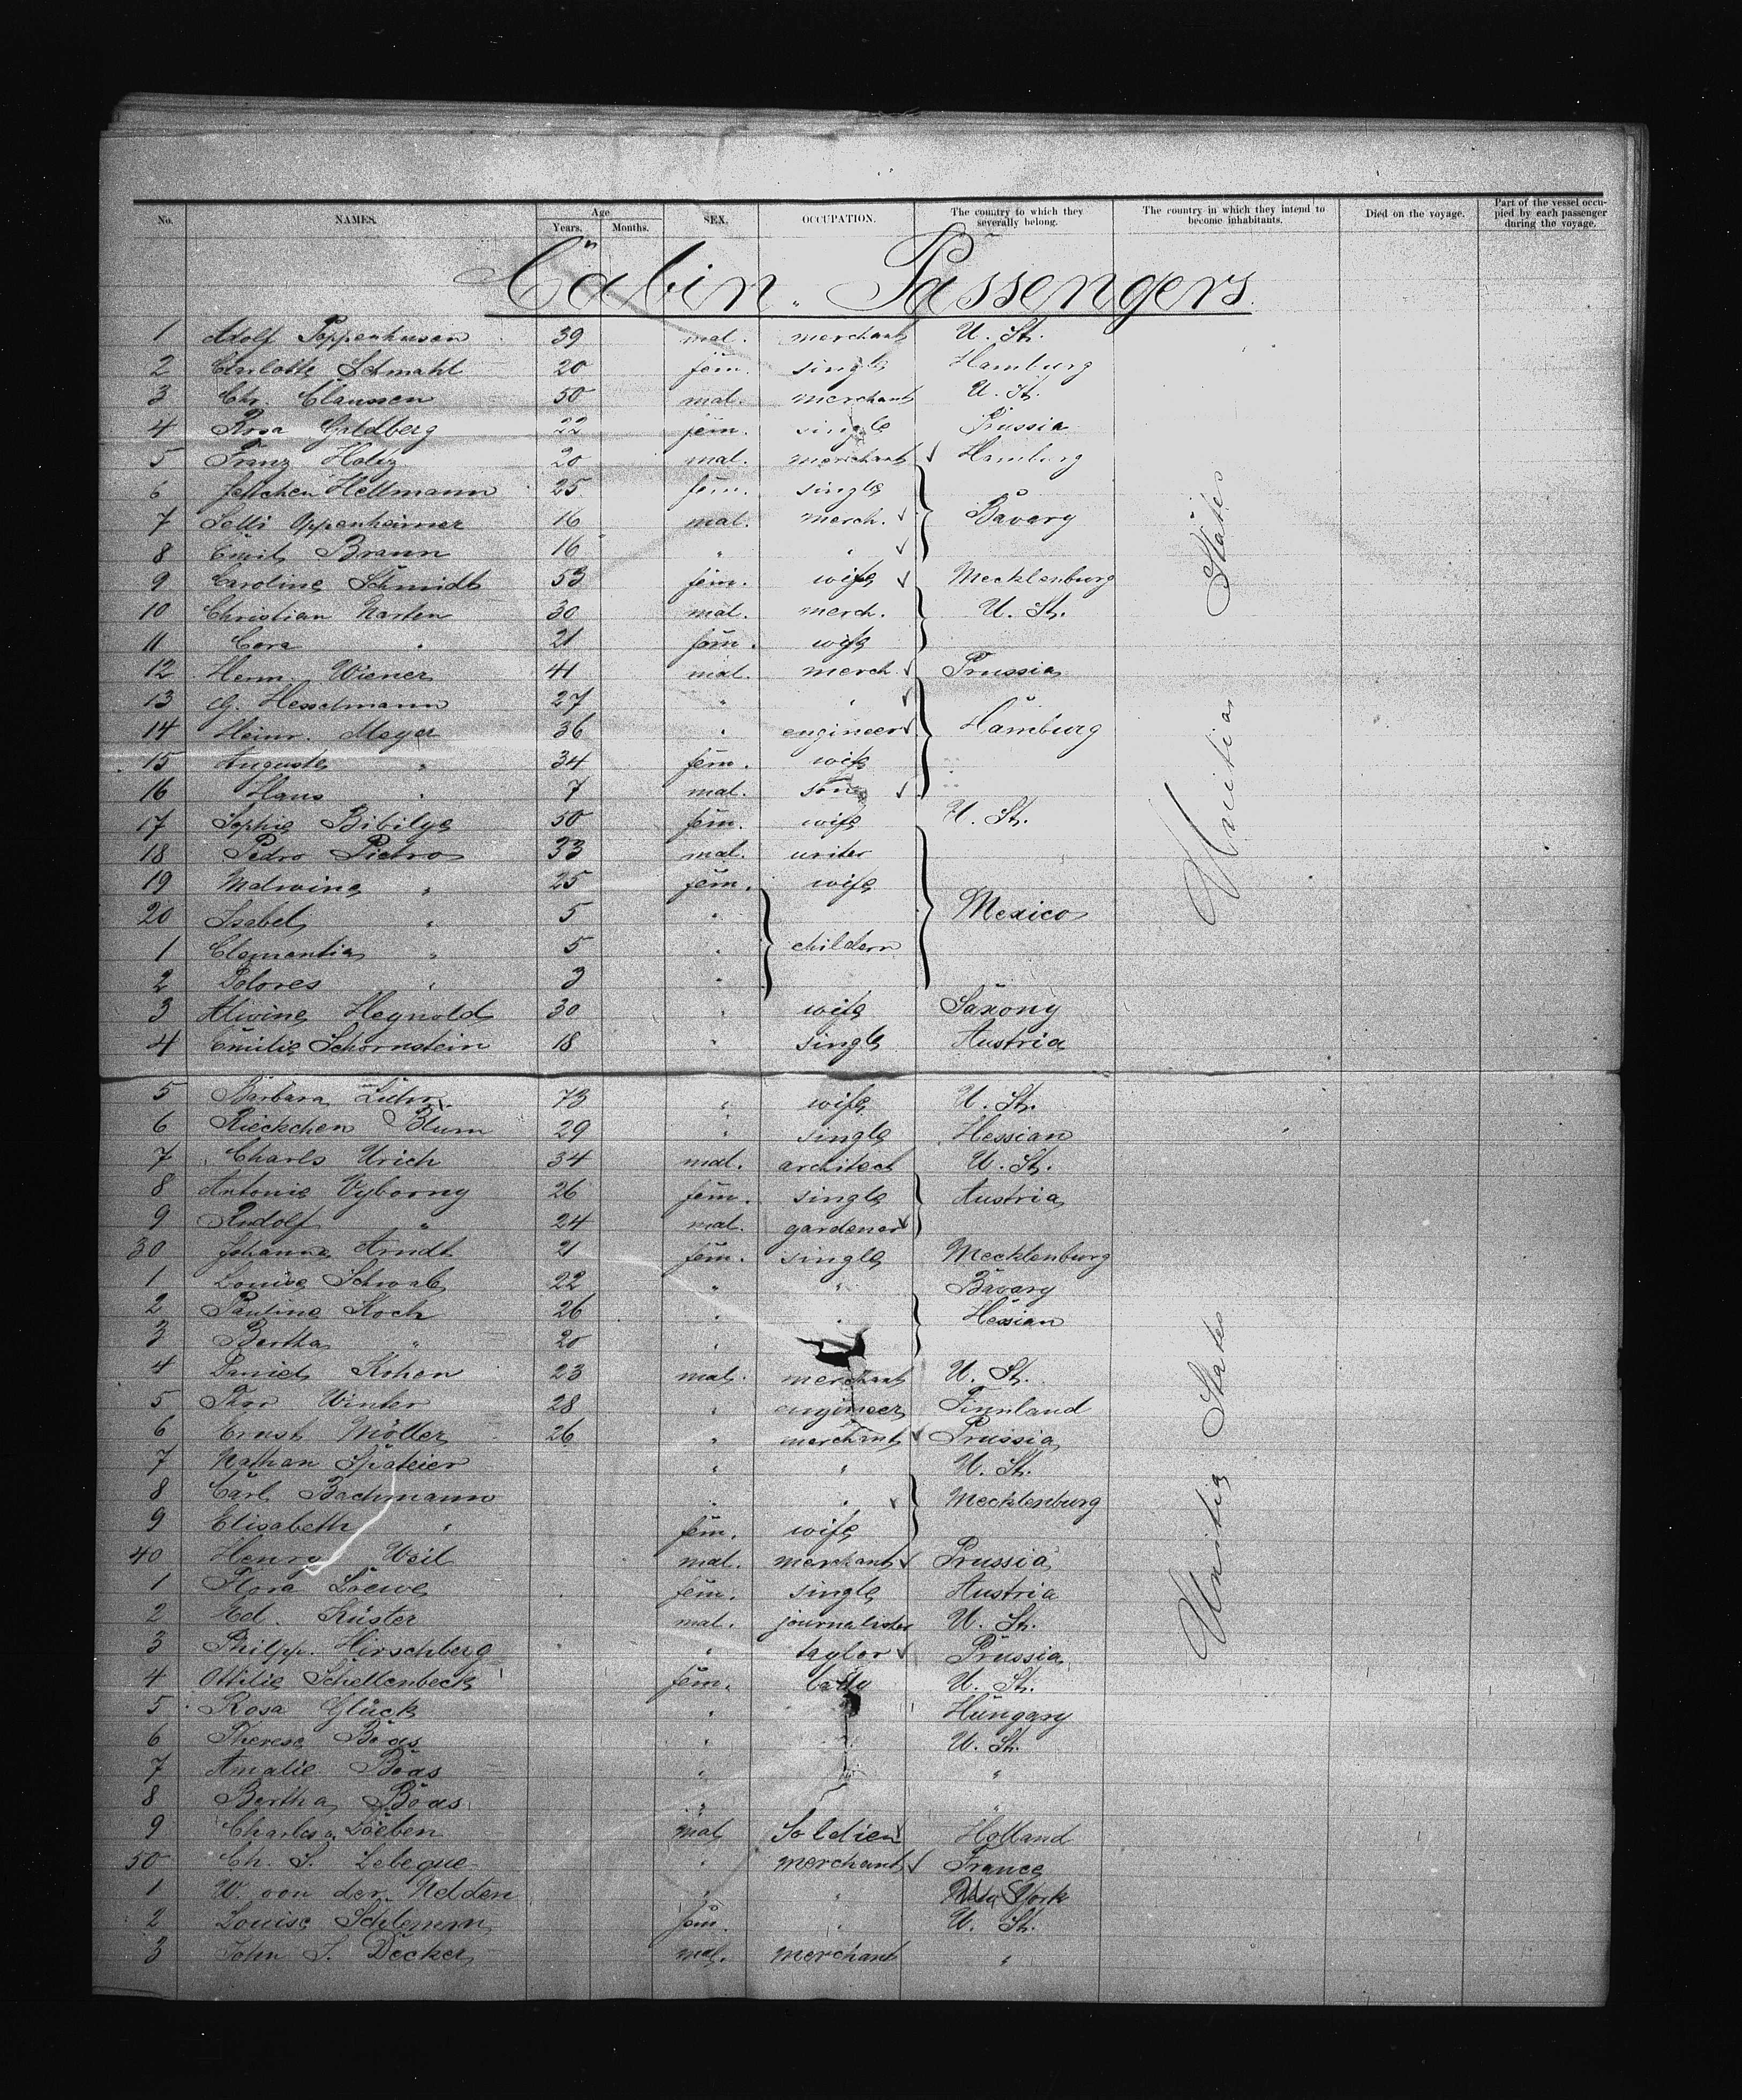 No. NAMES. Age Years. Months. SEX. OCCUPATION. The country to which they severally belong. The country in which they intend to become inhabitants. Died on the voyage. Part of the vessel occupied by each passenger during the voyage.
Cabin Passengers.
1 Adolf Poppenhusen 39 mal. merchant U. St.
2 Charlotte Schmahl 20 fem. single Hamburg
3 Chr. Claussen 50 mal. merchant U. St.
4 Rosa Goldberg 22 fem. single Prussia
5 Franz Holtz 20 mal. merchant Hamburg
6 Jettchen Hellmann 25 fem. single
7 Selli Oppenheimer 16 mal. merch. Bavary
8 Emil Braun 16 " "
9 Caroline Schmidt 53 fem. wife Mecklenburg
10 Christian Karten 30 mal. merch. U. St.
11 Cora " 21 fem. wife
12 Herm. Wiener 41 mal. merch. Prussia
13 G. Hesselmann 27 " "
14 Heinr. Meyer 36 " engineer Hamburg
15 Auguste " 34 fem. wife
16 Hans " 7 mal. son
17 Sophie Bibilye 50 fem. wife U. St.
18 Pedro Pietro 33 mal. writer
19 Malwine " 25 fem. wife
20 Isabel " 5 " Mexico
1 Clementia " 5 " childern
2 Dolores " 3 "
3 Alwine Heynold 30 " wife Saxony
4 Emilie Schornstein 18 " single Austria
5 Barbara Lühr 73 " wife U. St.
6 Rieckchen Blum 29 " single Hessian
7 Charls Urich 34 mal. architect U. St.
8 Antonie Vyborny 26 fem. single Austria
9 Rudolf " 24 mal. gardener
30 Johanna Arndt 21 fem. single Mecklenburg
1 Louise Schwab 22 " " Bavary
2 Pauline Koch 26 " " Hessian
3 Bertha " 20 "
4 Daniel Kohen 23 mal. merchant U. St.
5 Thor Winter 28 " engineer Finnland
6 Ernst Möller 26 " merchant Prussia
7 Nathan " " U. St.
8 Carl Bachmann " " Mecklenburg
9 Elisabeth " fem. wife
40 Henry Weil mal. merchant Prussia
1 Flora Loewe fem. single Austria
2 Ed. Küster mal. journalister U. St.
3 Philipp. Hirschberg " taylor Prussia
4 Ottilie Schellenbeck fem. U. St.
5 Rosa Glück " Hungary
6 Therese Boas " U. St.
7 Amalie Boas " "
8 Bertha Boas " "
9 Charles Loeben mal. Soldier Holland
50 Ch. S. Lebegue " merchant France
1 W. von der Nedden " " York
2 Louise Schlemm fem. " U. St.
3 John J. Decker mal. merchant "
Unitia States
Unitia States